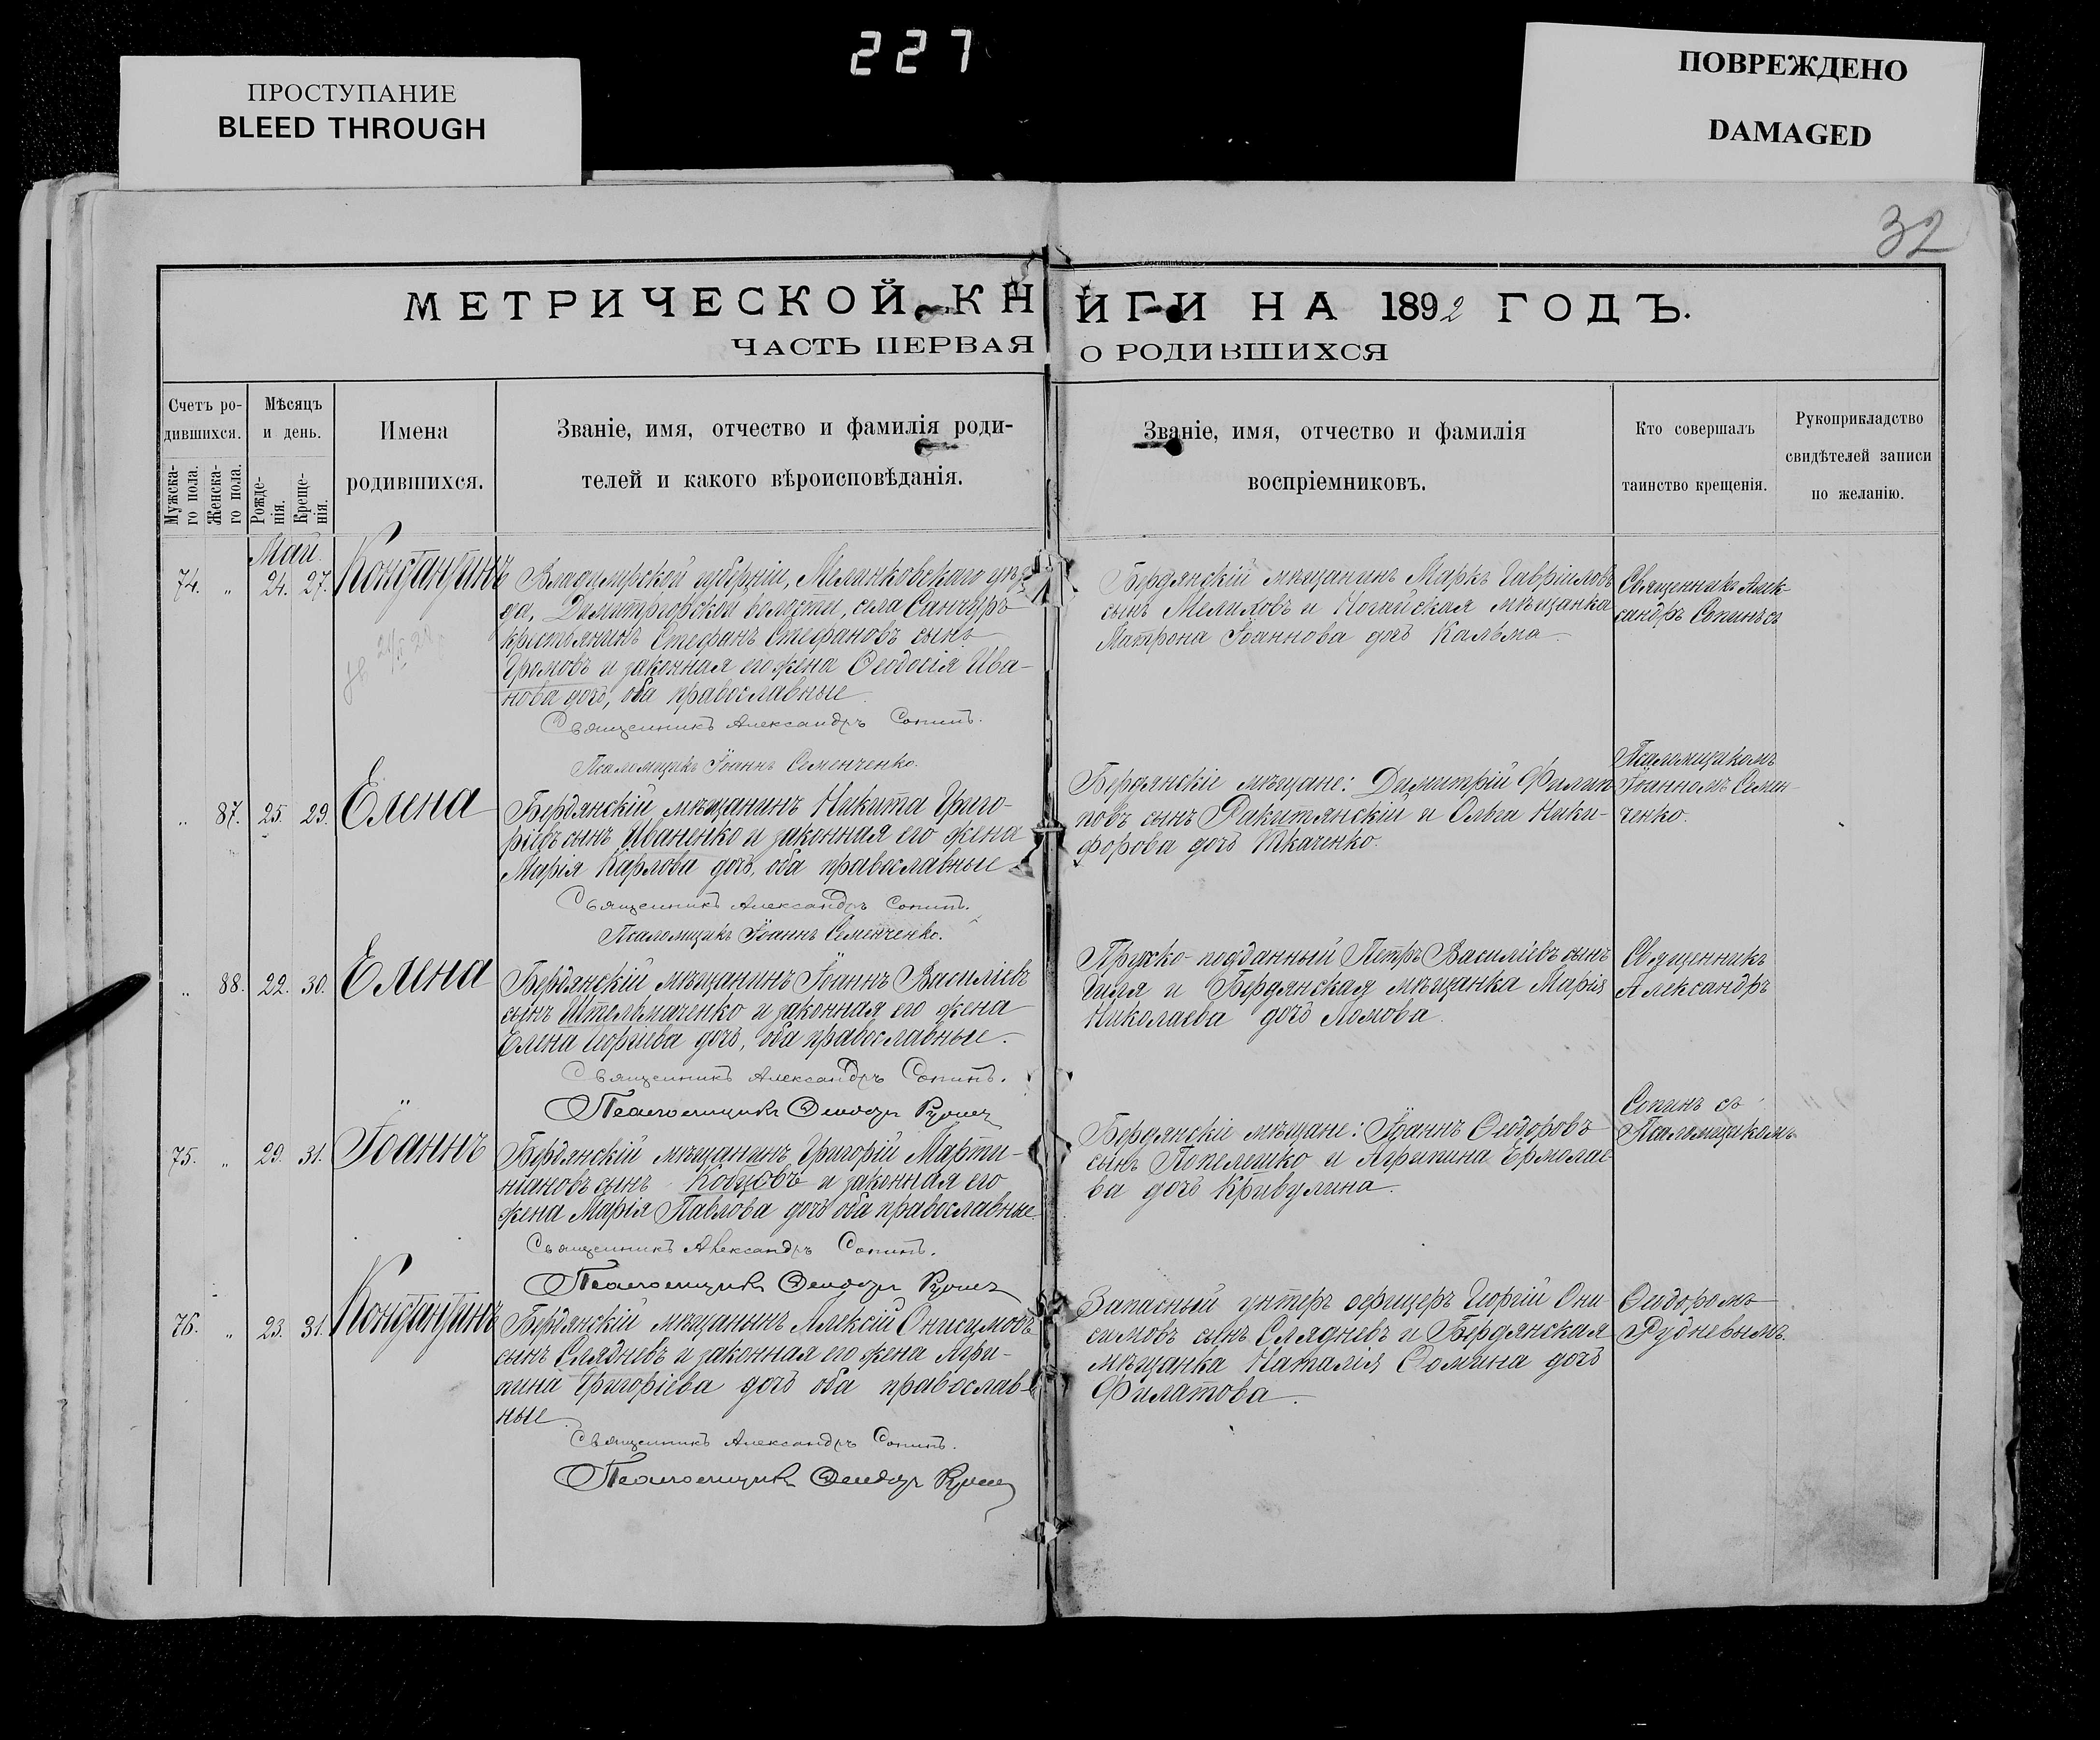 227
ПРОСТУПАНИЕ
BLEED THROUGH
ПОВРЕЖДЕНО
DAMAGED
32
МЕТРИЧЕСКОЙ КНИГИ НА 1892 ГОДЪ.
ЧАСТЬ ПЕРВАЯ О РОДИВШИХСЯ
Счетъ ро-
дившихся.
Мужска-
го пола.
Женска-
го пола.
Мѣсяцъ
и день.
Рожде-
нія.
Креще-
нія.
Имена
родившихся.
Званіе, имя, отчество и фамилія роди-
телей и какого вѣроисповѣданія.
Званіе, имя, отчество и фамилія
воспріемниковъ.
Кто совершалъ
таинство крещенія.
Рукоприкладство
свидѣтелей записи
по желанію.
Май
74. " 24. 27. Константинъ
Владимірской губерніи, Меленковскаго уѣз-
да, Димитрогорской волости, села Санчуръ
крестьянинъ Стефанъ Стефановъ сынъ
Громовъ и законная его жена Ѳеодосія Ива-
нова дочь, оба православные.
Священникъ Александръ Сопинъ.
Псаломщикъ Іоаннъ Семенченко.
Бердянскій мѣщанинъ Маркъ Гавріиловъ
сынъ Мелиховъ и Ногайская мѣщанка
Матрона Іоаннова дочь Кальма.
Священникъ Алек-
сандръ Сопинъ съ
Псаломщикомъ
Іоанномъ Семен-
ченко.
" 87. 25. 29. Елена
Бердянскій мѣщанинъ Никита Григо-
ріевъ сынъ Иваненко и законная его жена
Марія Карлова дочь, оба православные
Священникъ Александръ Сопинъ.
Псаломщикъ Іоаннъ Семенченко.
Бердянскіе мѣщане: Димитрій Филип-
повъ сынъ Ракитянскій и Ольга Ники-
форова дочь Ткаченко.
" 88. 22. 30. Елена
Бердянскій мѣщанинъ Іоаннъ Василіевъ
сынъ Штельмаченко и законная его жена
Елена Георгіева дочь, оба православные.
Священникъ Александръ Сопинъ.
Псаломщикъ Ѳеодоръ
Турко-подданный Петръ Василіевъ сынъ
Гиля и Бердянская мѣщанка Марія
Николаева дочь Ломова.
Священникъ
Александръ
Сопинъ съ
Псаломщикомъ
Ѳеодоромъ
Рудневымъ.
75. " 29. 31. Іоаннъ
Бердянскій мѣщанинъ Григорій Марти-
ніановъ сынъ Кобцовъ и законная его
жена Марія Павлова дочь оба православные.
Священникъ Александръ Сопинъ.
Псаломщикъ Ѳеодоръ
Бердянскіе мѣщане: Іоаннъ Ѳеодоровъ
сынъ Попелешко и Агрипина Ермолае-
ва дочь Кривулина.
76. " 23. 31. Константинъ
Бердянскій мѣщанинъ Алексій Онисимовъ
сынъ Сляднєвъ и законная его жена Агри-
пина Григоріева дочь оба православ-
ные.
Священникъ Александръ Сопинъ.
Псаломщикъ Ѳеодоръ
Запасный унтеръ офицеръ Георгій Они-
симовъ сынъ Слядневъ и Бердянская
мѣщанка Наталія Ѳомина дочь
Филатова.